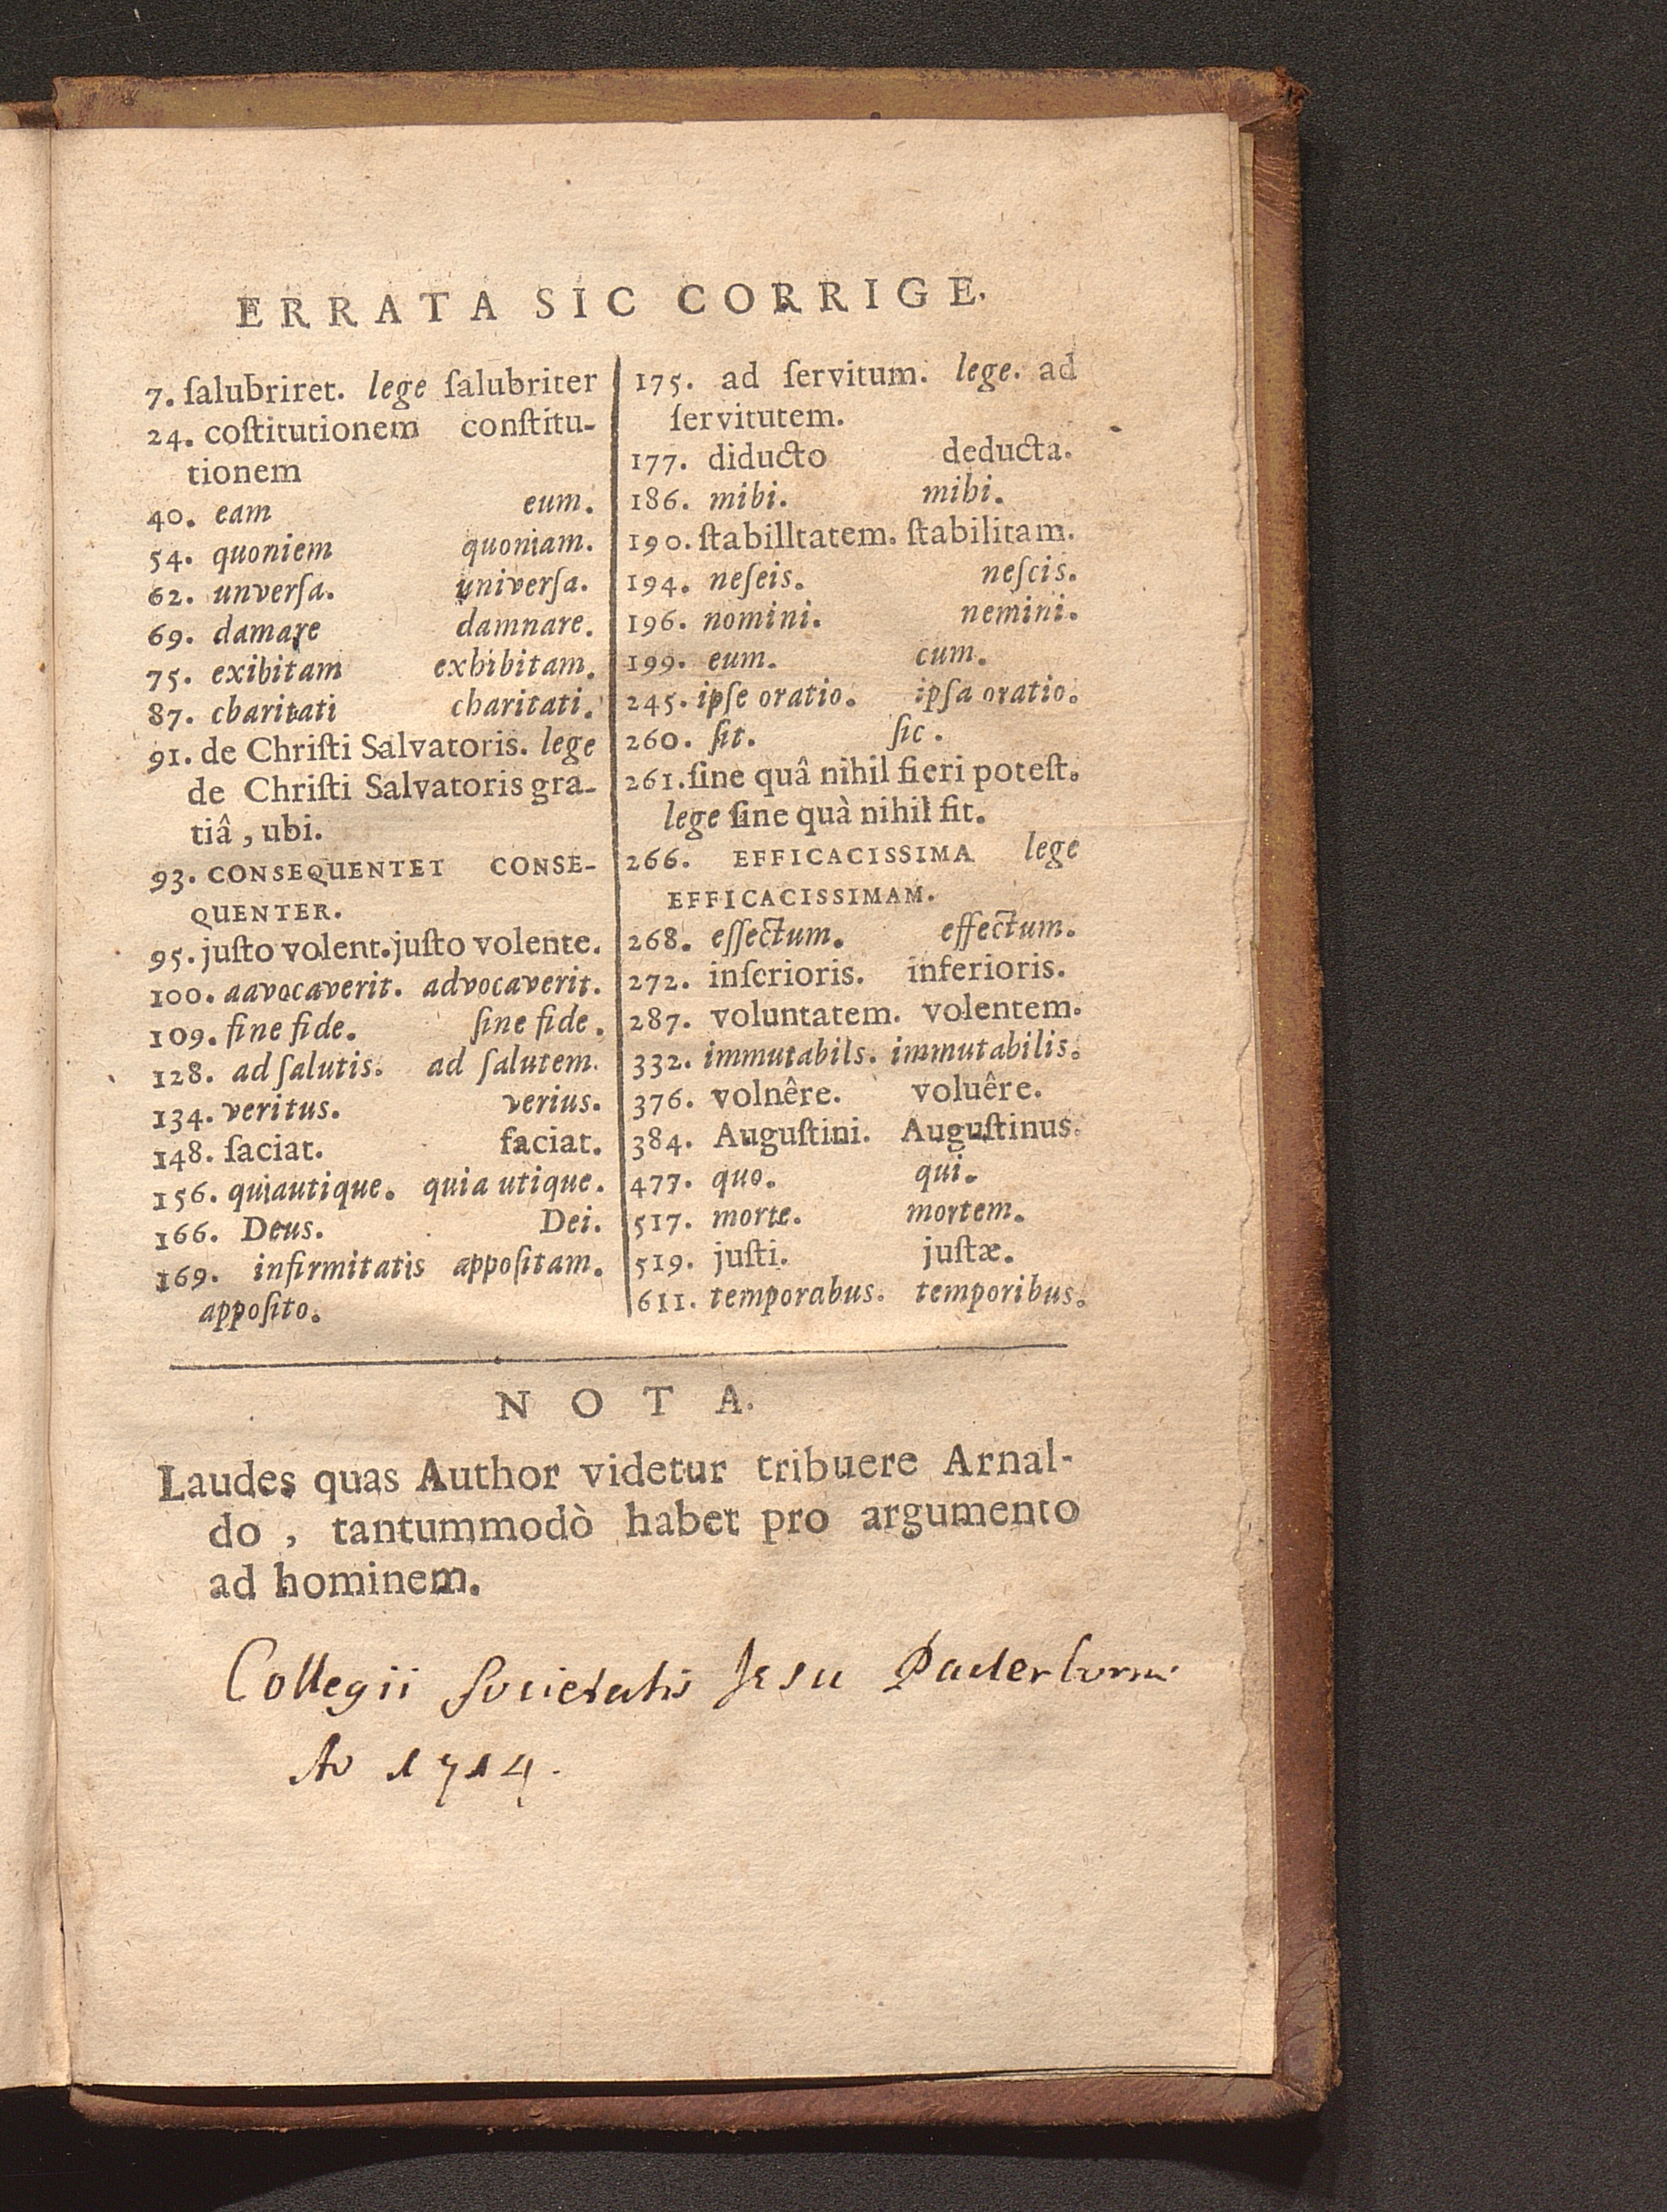 ERRATA SIC CORRIGE.
7. ſalubriret. lege ſalubriter
24. coſtitutionem conſtitu-
tionem
40. eam eum.
54. quoniem quoniam.
62. unverſa. univerſa.
69. damare damnare.
75. exibitam exhibitam.
87. cbaritati charitati.
91. de Chriſti Salvatoris. lege
de Chriſti Salvatoris gra-
tiâ, ubi.
93. CONSEQUENTET CONSE-
QUENTER.
95. juſto volent. juſto volente.
100. aavocaverit. advocaverit.
109. ſine fide. ſine fide.
128. ad ſalutis. ad ſalutem.
134. veritus. verius.
148. ſaciat. faciat.
156. quiautique. quia utique.
166. Deus. Dei.
169. infirmitatis appoſitam.
appoſito.
175. ad ſervitum. lege. ad
ſervitutem.
177. diducto deducta.
186. mibi. mihi.
190. ſtabilltatem. ſtabilitam.
194. neſeis. neſcis.
196. nomini. nemini.
199. eum. cum.
245. ipſe oratio. ipſa oratio.
260. ſit. ſic.
261. ſine quâ nihil fieri poteſt.
lege ſine quà nihil fit.
266. EFFICACISSIMA lege
EFFICACISSIMAM.
268. eſſectum. effectum.
272. inſerioris. inferioris.
287. voluntatem. volentem.
332. immutabils. immutabilis.
376. volnêre. voluêre.
384. Auguſtini. Auguſtinus.
477. quo. qui.
517. morte. mortem.
519. juſti. juſtæ.
611. temporabus. temporibus.
NOTA.
Laudes quas Author videtur tribuere Arnal-
do, tantummodò habet pro argumento
ad hominem.
Collegii Societatis Jesu Paderbornæ
Ao 1714.